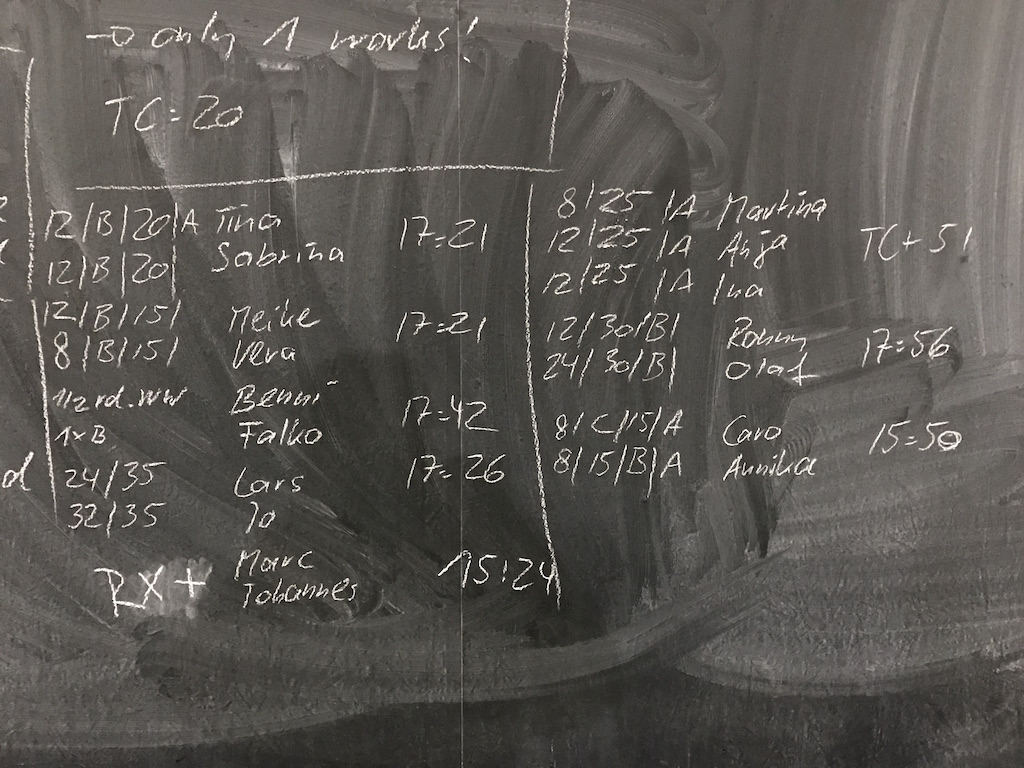 -o only 1 works!
TC=20
12/B/20/A Tina
12/B/20/ Sabrina 17=21
12/B/15/ Meike
8/B/15/ Vera 17=21
1/2 rd. ww Benni
1xB Falko 17=42
24/35 Lars 17=26
32/35 Jo
RX+ Marc
Johannes 15:24
8/25 /A Martina
12/25 /A Anja TC+51
12/25 /A Ina
12/30/B/ Ronny
24/30/B/ Olaf 17=56
8/C/15/A Caro
8/15/B/A Annika 15=50
d